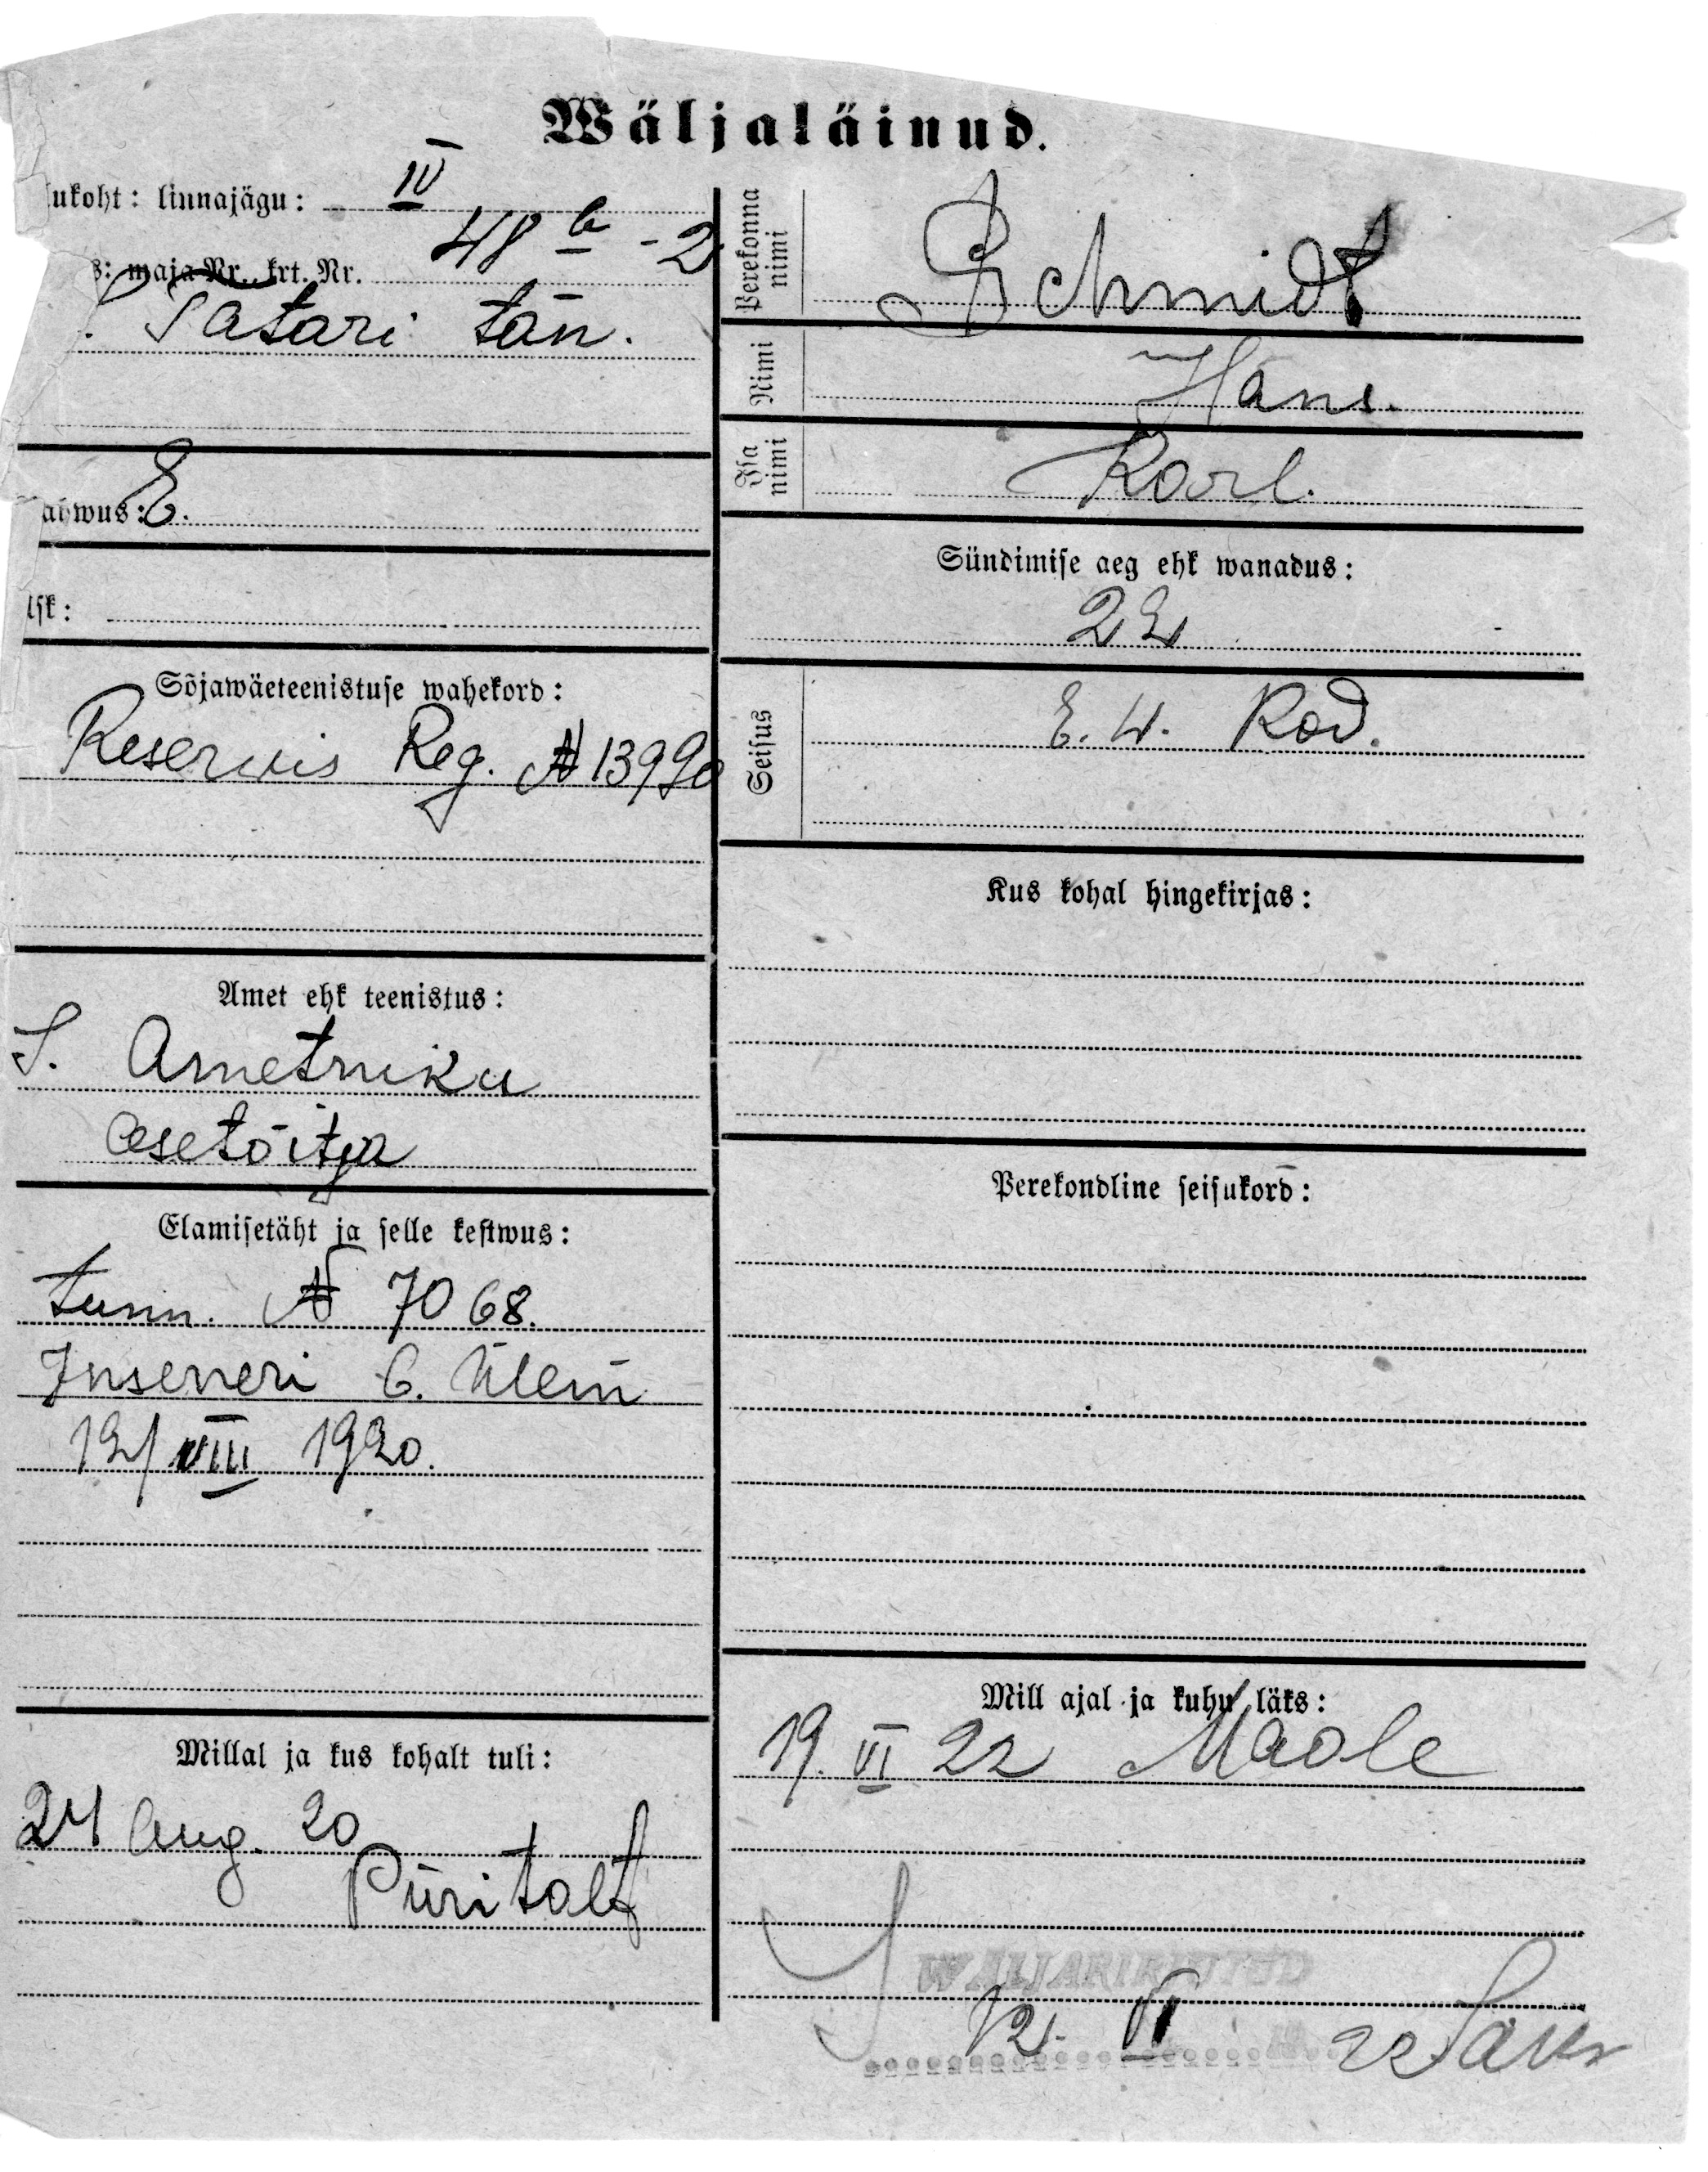 Wäljaläinud.
ukoht: linnajägu: IV
maja Nr. krt. Nr. 48 b - 2
Tatari tän.
wus: E.
isk:
Sõjawäeteenistuse wahekord:
Reserwis Reg. № 13990
Amet ehk teenistus:
S. Ametniku
asetäitja
Elamisetäht ja selle kestwus:
tunn. № 7068.
Inseneri
12/VIII 1920.
Millal ja kus kohalt tuli:
24 Aug. 20
Piiritalt
Perekonna nimi Schmidt
Nimi Hans.
Isa nimi Karl.
Sündimise aeg ehk wanadus:
22
Seisus E. W. Kod.
Kus kohal hingekirjas:
Perekondline seisukord:
Mill ajal ja kuhu läks:
19. VI 22 Maale
WÄLJAKIRJUTUD
12. VI 22